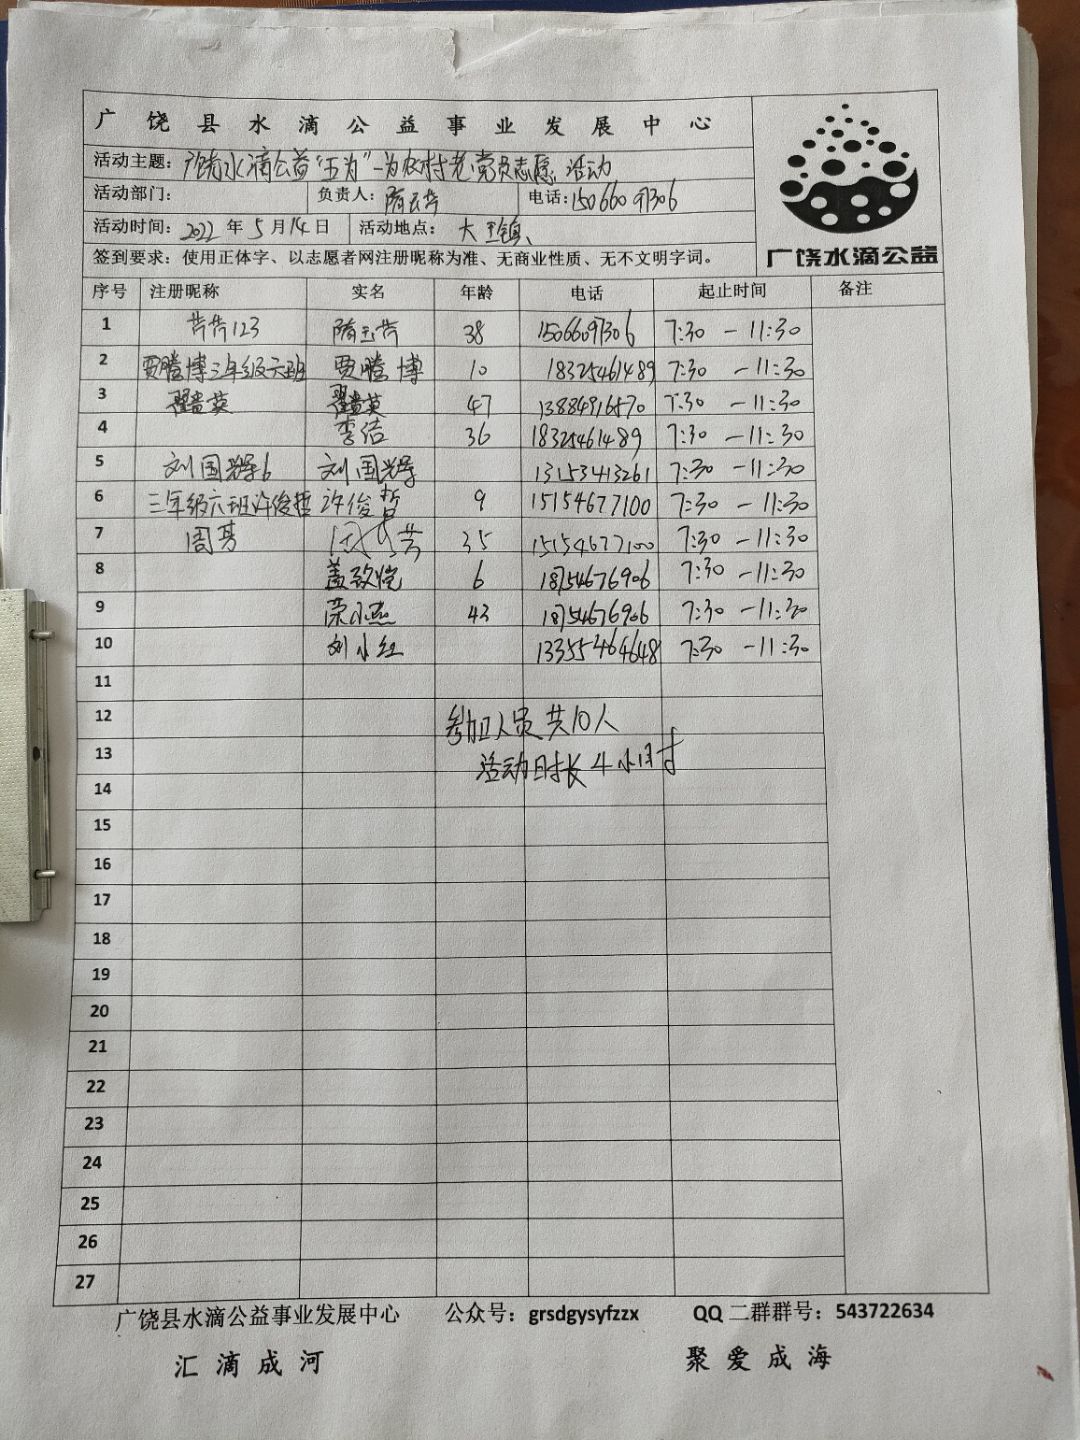 广饶县水滴公益事业发展中心
活动主题：广饶水滴公益"五为"-为农村老党员志愿活动
活动部门： 负责人：隋玉芳 电话：15066097306
活动时间：2022年5月14日 活动地点：大王镇
签到要求：使用正体字、以志愿者网注册昵称为准、无商业性质、无不文明字词。
广饶水滴公益
序号 注册昵称 实名 年龄 电话 起止时间 备注
1 芳芳123 隋玉芳 38 15066097306 7:30-11:30
2 贾腾博三年级六班 贾腾博 10 18325461489 7:30-11:30
3 翟贵英 翟贵英 47 13884916570 7:30-11:30
4 李洁 36 18325461489 7:30-11:30
5 刘国辉6 刘国辉 13153413261 7:30-11:30
6 三年级六班许俊哲 许俊哲 9 15154677100 7:30-11:30
7 周芳 周芳 35 15154677100 7:30-11:30
8 盖致悦 6 18754676906 7:30-11:30
9 荣小燕 43 18754676906 7:30-11:30
10 刘小红 13355464648 7:30-11:30
11
12 参加人员共10人
13 活动时长4小时
14
15
16
17
18
19
20
21
22
23
24
25
26
27
广饶县水滴公益事业发展中心 公众号：grsdgysyfzzx QQ二群群号：543722634
汇滴成河 聚爱成海